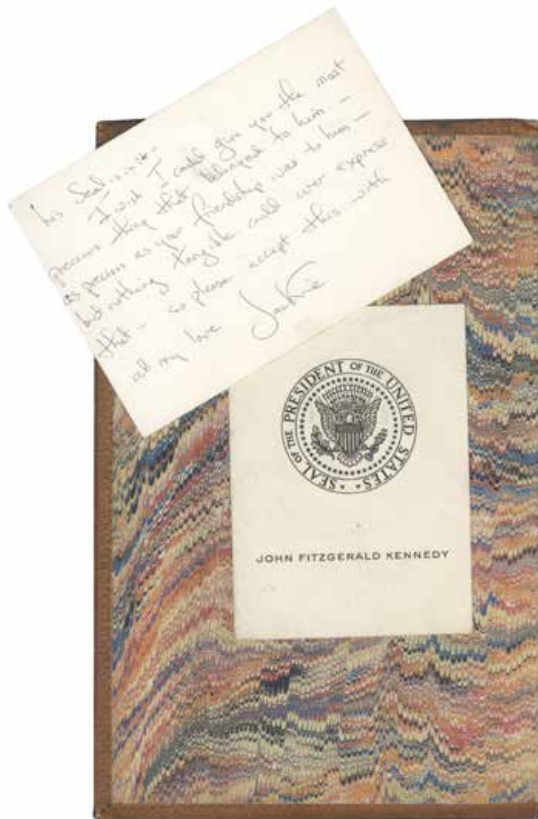 I wish I could give you the most
precious thing that belonged to him –
as precious as your friendship was to him –
but nothing tangible could ever express
that – so please accept this with
all my love Jackie
SEAL OF THE PRESIDENT OF THE UNITED STATES
JOHN FITZGERALD KENNEDY